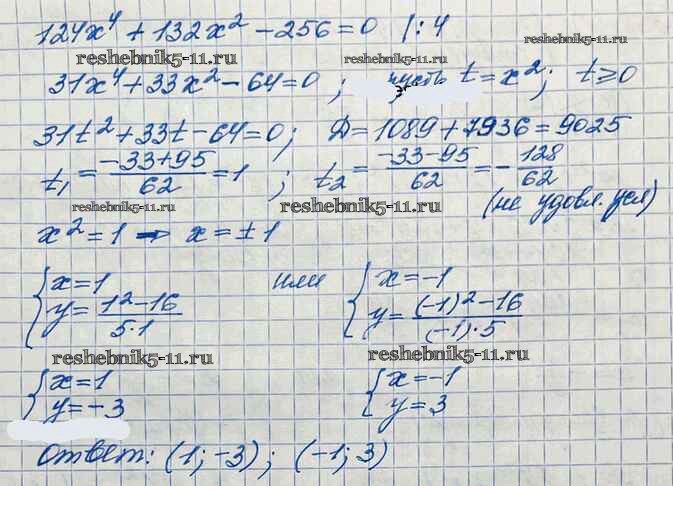 124x⁴ + 132x² - 256 = 0 | : 4
reshebnik5-11.ru reshebnik5-11.ru
reshebnik5-11.ru
31x⁴ + 33x² - 64 = 0 ; пусть t = x² ; t ≥ 0
31t² + 33t - 64 = 0 ; Д = 1089 + 7936 = 9025
t₁ = (-33+95)/62 = 1 ; t₂ = (-33-95)/62 = -128/62
reshebnik5-11.ru reshebnik5-11.ru (не удовл. усл)
x² = 1 ⇒ x = ±1
{ x = 1 или { x = -1
y = (1²-16)/(5·1) y = ((-1)²-16)/((-1)·5)
reshebnik5-11.ru reshebnik5-11.ru
{ x = 1 { x = -1
y = -3 y = 3
Ответ: (1; -3) ; (-1; 3)